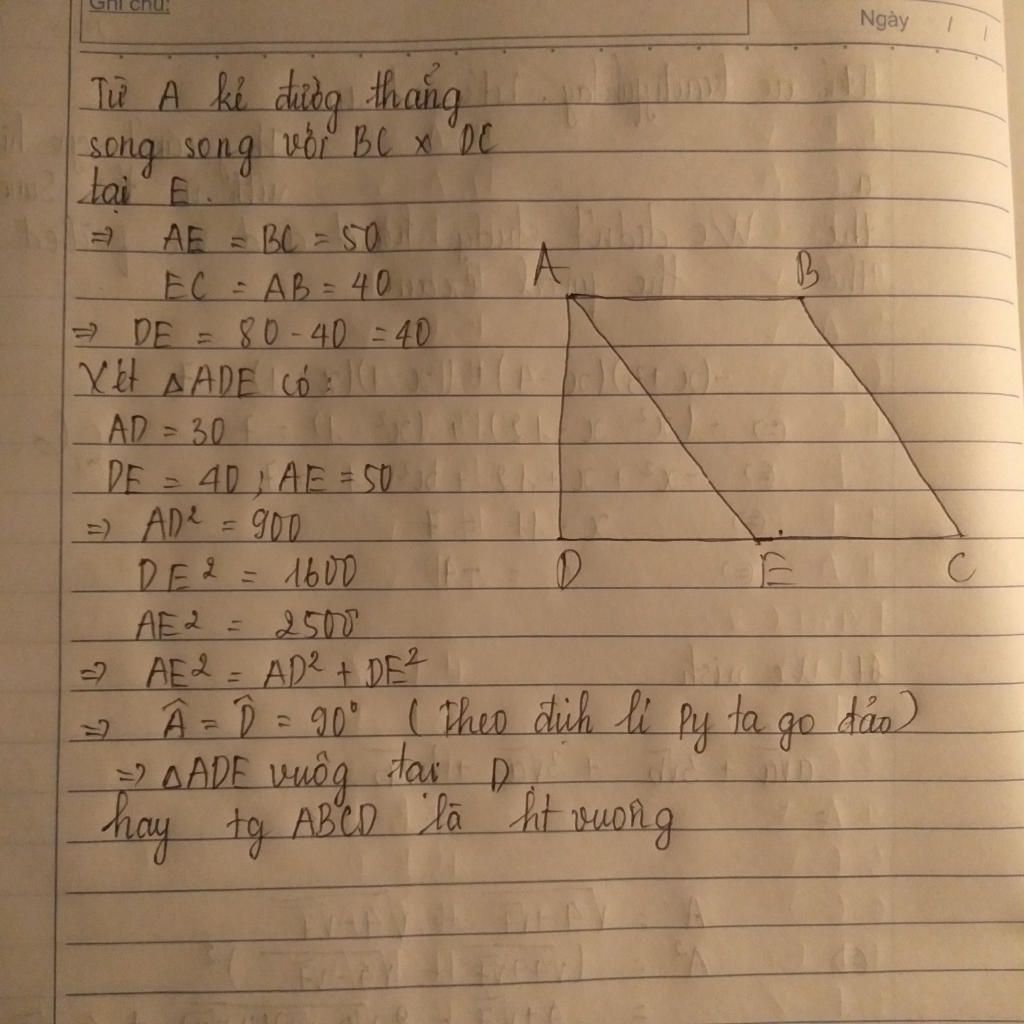 Ghi chú:
Ngày / /
Từ A kẻ đường thẳng
song song với BC x DC
tại E.
⇒ AE = BC = 50
EC = AB = 40
⇒ DE = 80 - 40 = 40
Xét △ADE có:
AD = 30
DE = 40 ; AE = 50
⇒ AD² = 900
DE² = 1600
AE² = 2500
⇒ AE² = AD² + DE²
⇒ Â = D̂ = 90° (Theo định lí Py ta go đảo)
⇒ △ADE vuôg tại D
hay tg ABCD là ht vuông
A B
D E C